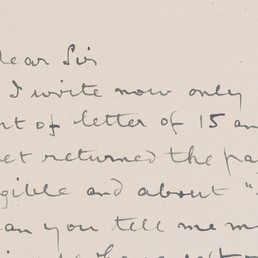 Dear Sir
I write now only
of letter of 15 an
et returned the pa
gible and about "
an you tell me m